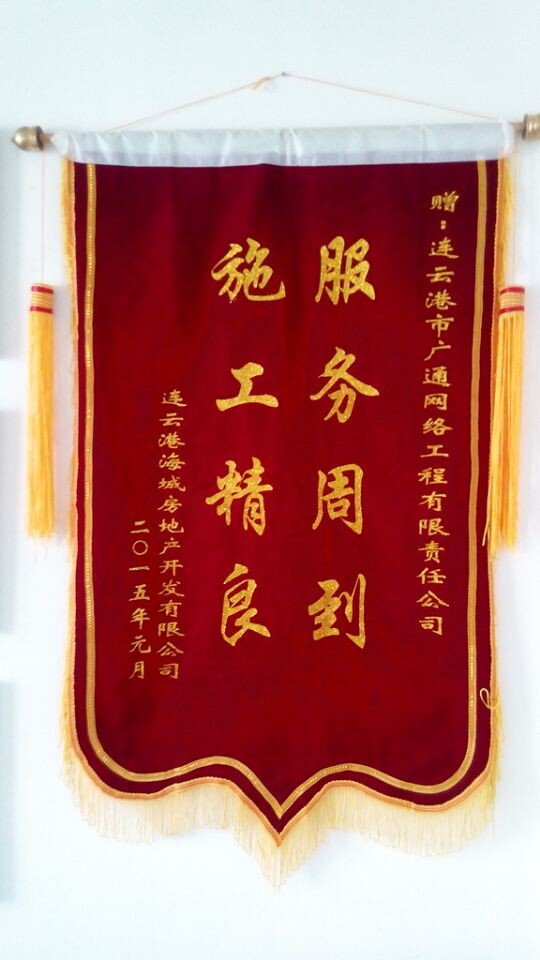 赠：连云港市广通网络工程有限责任公司
服务周到
施工精良
连云港海城房地产开发有限公司
二〇一五年元月